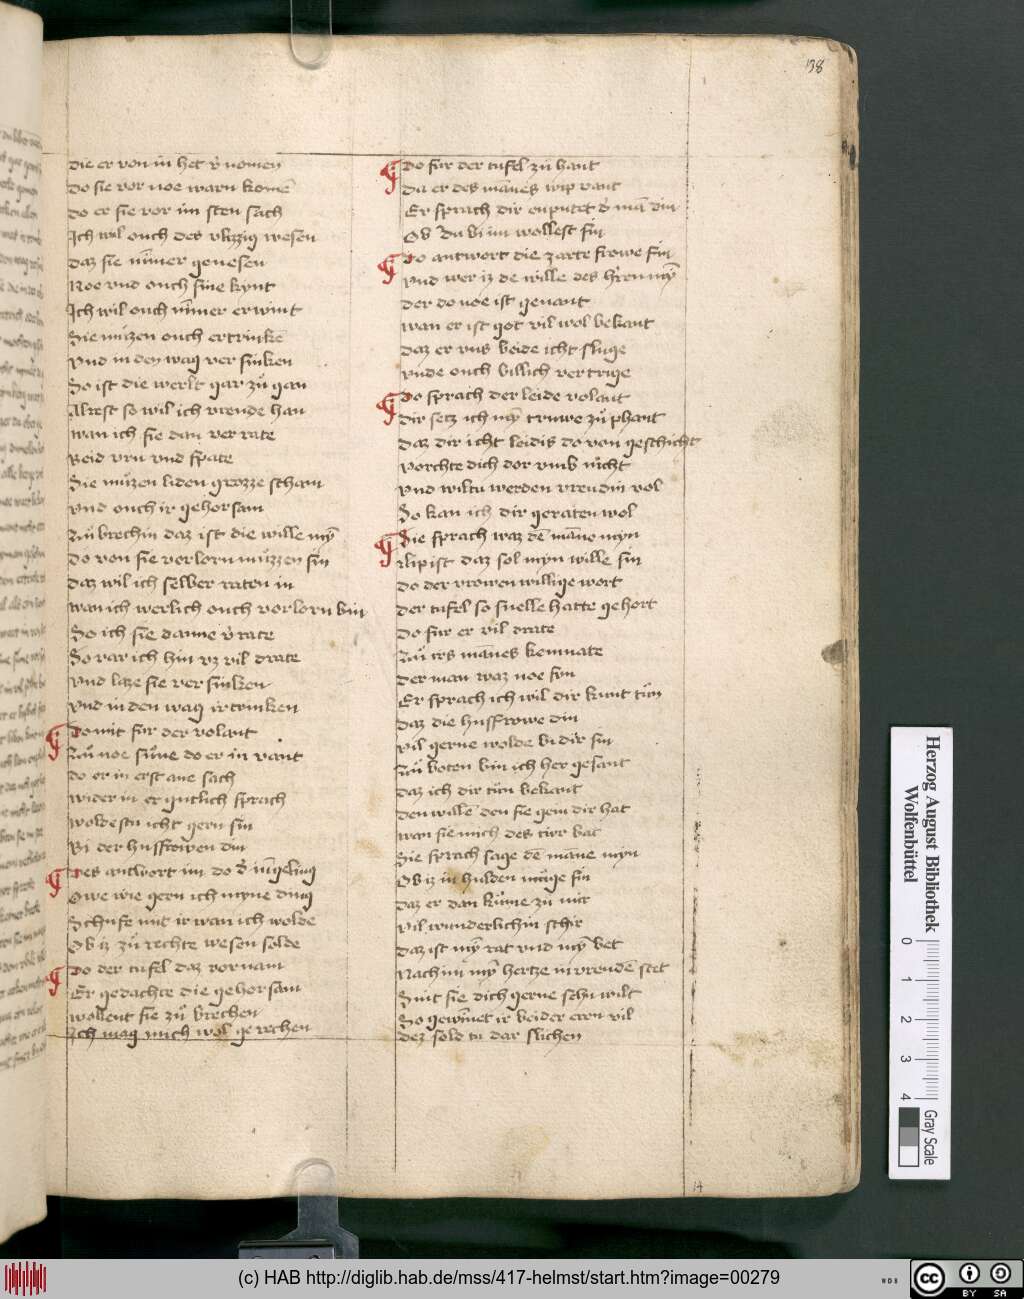 138
die er von in het v̓nomen
Do sie vor noe warn komē
do er sie vor im sten sach
Ich wil ouch des vlizzig wesen
daz sie nīmer genesen
Noe vnd ouch sine kynt
Ich wil ouch nīmer erwint
Sie muzen ouch ertrinkē
vnd in den wag versinken
So ist die werlt gar zů gan
Alrest so wil ich vrende han
wan ich sie dan verrate
Beid vru vnd spate
Sie můzen liden grozze scham
vnd ouch ir gehorsam
Zubrechin daz ist die wille mȳ
do von sie vorlorn můzzen sin
daz wil ich selber raten in
wan ich werlich ouch vorlorn bin
So ich sie danne v̓rate
So var ich hin vz vil drate
vnd laze sie versinken
vnd in den wag irtrinken
Domit fur der volant
Zů noe sůne do er in vant
do er in erst ane sach
wider in er gutlich sprach
woldestu icht gern sin
Bi der husfrowen din
Des antwort im do d̓
Owe wie gern ich myne ding
Schufe mit ir wan ich wolde
Ob iz zů rechte wesen solde
Do der tufel daz vornam
Er gedachte die gehorsam
wollent sie zů brechen
Ich mag mich wol gerechen
Do fur der tufel zů hant
Da er des mānes wip vant
Er sprach dir enputet d̓ mā din
Ob du bi im wollest sin
Do antwort die zarte frowe sin
vnd wer iz de wille des h̓ren mȳ
der do noe ist genant
wan er ist got vil wol bekant
daz er vns beide icht sluge
vnde ouch billich vertrige
Do sprach der leide volant
dir setz ich mȳ truwe zů phant
daz dir icht leidis do von geschicht
vorchte dich dor vmb nicht
vnd wiltu werden vreudin vol
So kan ich dir geraten wol
Sie sprach waz dē māne myn
ilip ist daz sol myn wille sin
do der vrowen willige wort
der tufel so snelle hatte gehort
do fur er vil drate
Zů irs mānes kemnate
der man waz noe syn
Er sprach ich wil dir kunt tůn
daz die husfrowe din
vil gerne wolde bi dir sin
Zů boten bin ich her gesant
daz ich dir tůn bekant
den wille den sie gein dir hat
wan sie mich des tiwr bat
Sie sprach sage dē māne myn
Ob iz in hulden můge sin
daz er dan kůme zu mir
vil wunderlichin schir
daz ist mȳ rat vnd mȳ bet
Nach im mȳ hertze in vreudē stet
Sint sie dich gerne sehn wilt
So gewīnet ir beider ern vil
dez sold tu dar slichen
14
Herzog August Bibliothek
Wolfenbüttel
0 1 2 3 4
Gray Scale
(c) HAB http://diglib.hab.de/mss/417-helmst/start.htm?image=00279
WDB
cc BY SA